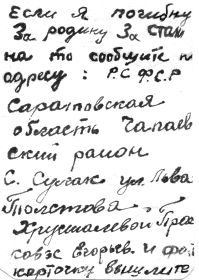 Если я погибну
За родину За Стал
на то сообщите п
адресу : Р.С.Ф.С.Р
Саратовская
область Чапаев
ский район
С. Сулак ул. Льва
Толстова
Хрусталевой Прас
ковэе Егорьв. и фо
карточку вышлите